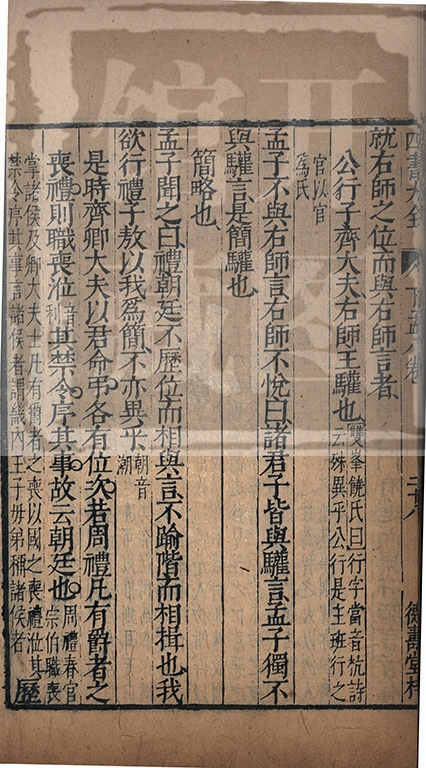 四書大全
下孟八卷
二十八
德壽堂梓
就右師之位而與右師言者
公行子齊大夫右師王驩也
雙峯饒氏曰行字當音杭詩
云殊異乎公行是主班行之
官以官
爲氏
孟子不與右師言右師不悅曰諸君子皆與驩言孟子獨不
與驩言是簡驩也
簡略也
孟子聞之曰禮朝廷不歷位而相與言不踰階而相揖也我
欲行禮子敖以我爲簡不亦異乎
朝音
潮
是時齊卿大夫以君命弔各有位次若周禮凡有爵者之
喪禮則職喪涖
音
利
其禁令序其事故云朝廷也
周禮春官
宗伯職喪
掌諸侯及卿大夫士凡有爵者之喪以國之喪禮涖其
禁令序其事言諸侯者謂畿內王子母弟稱諸侯者
歷